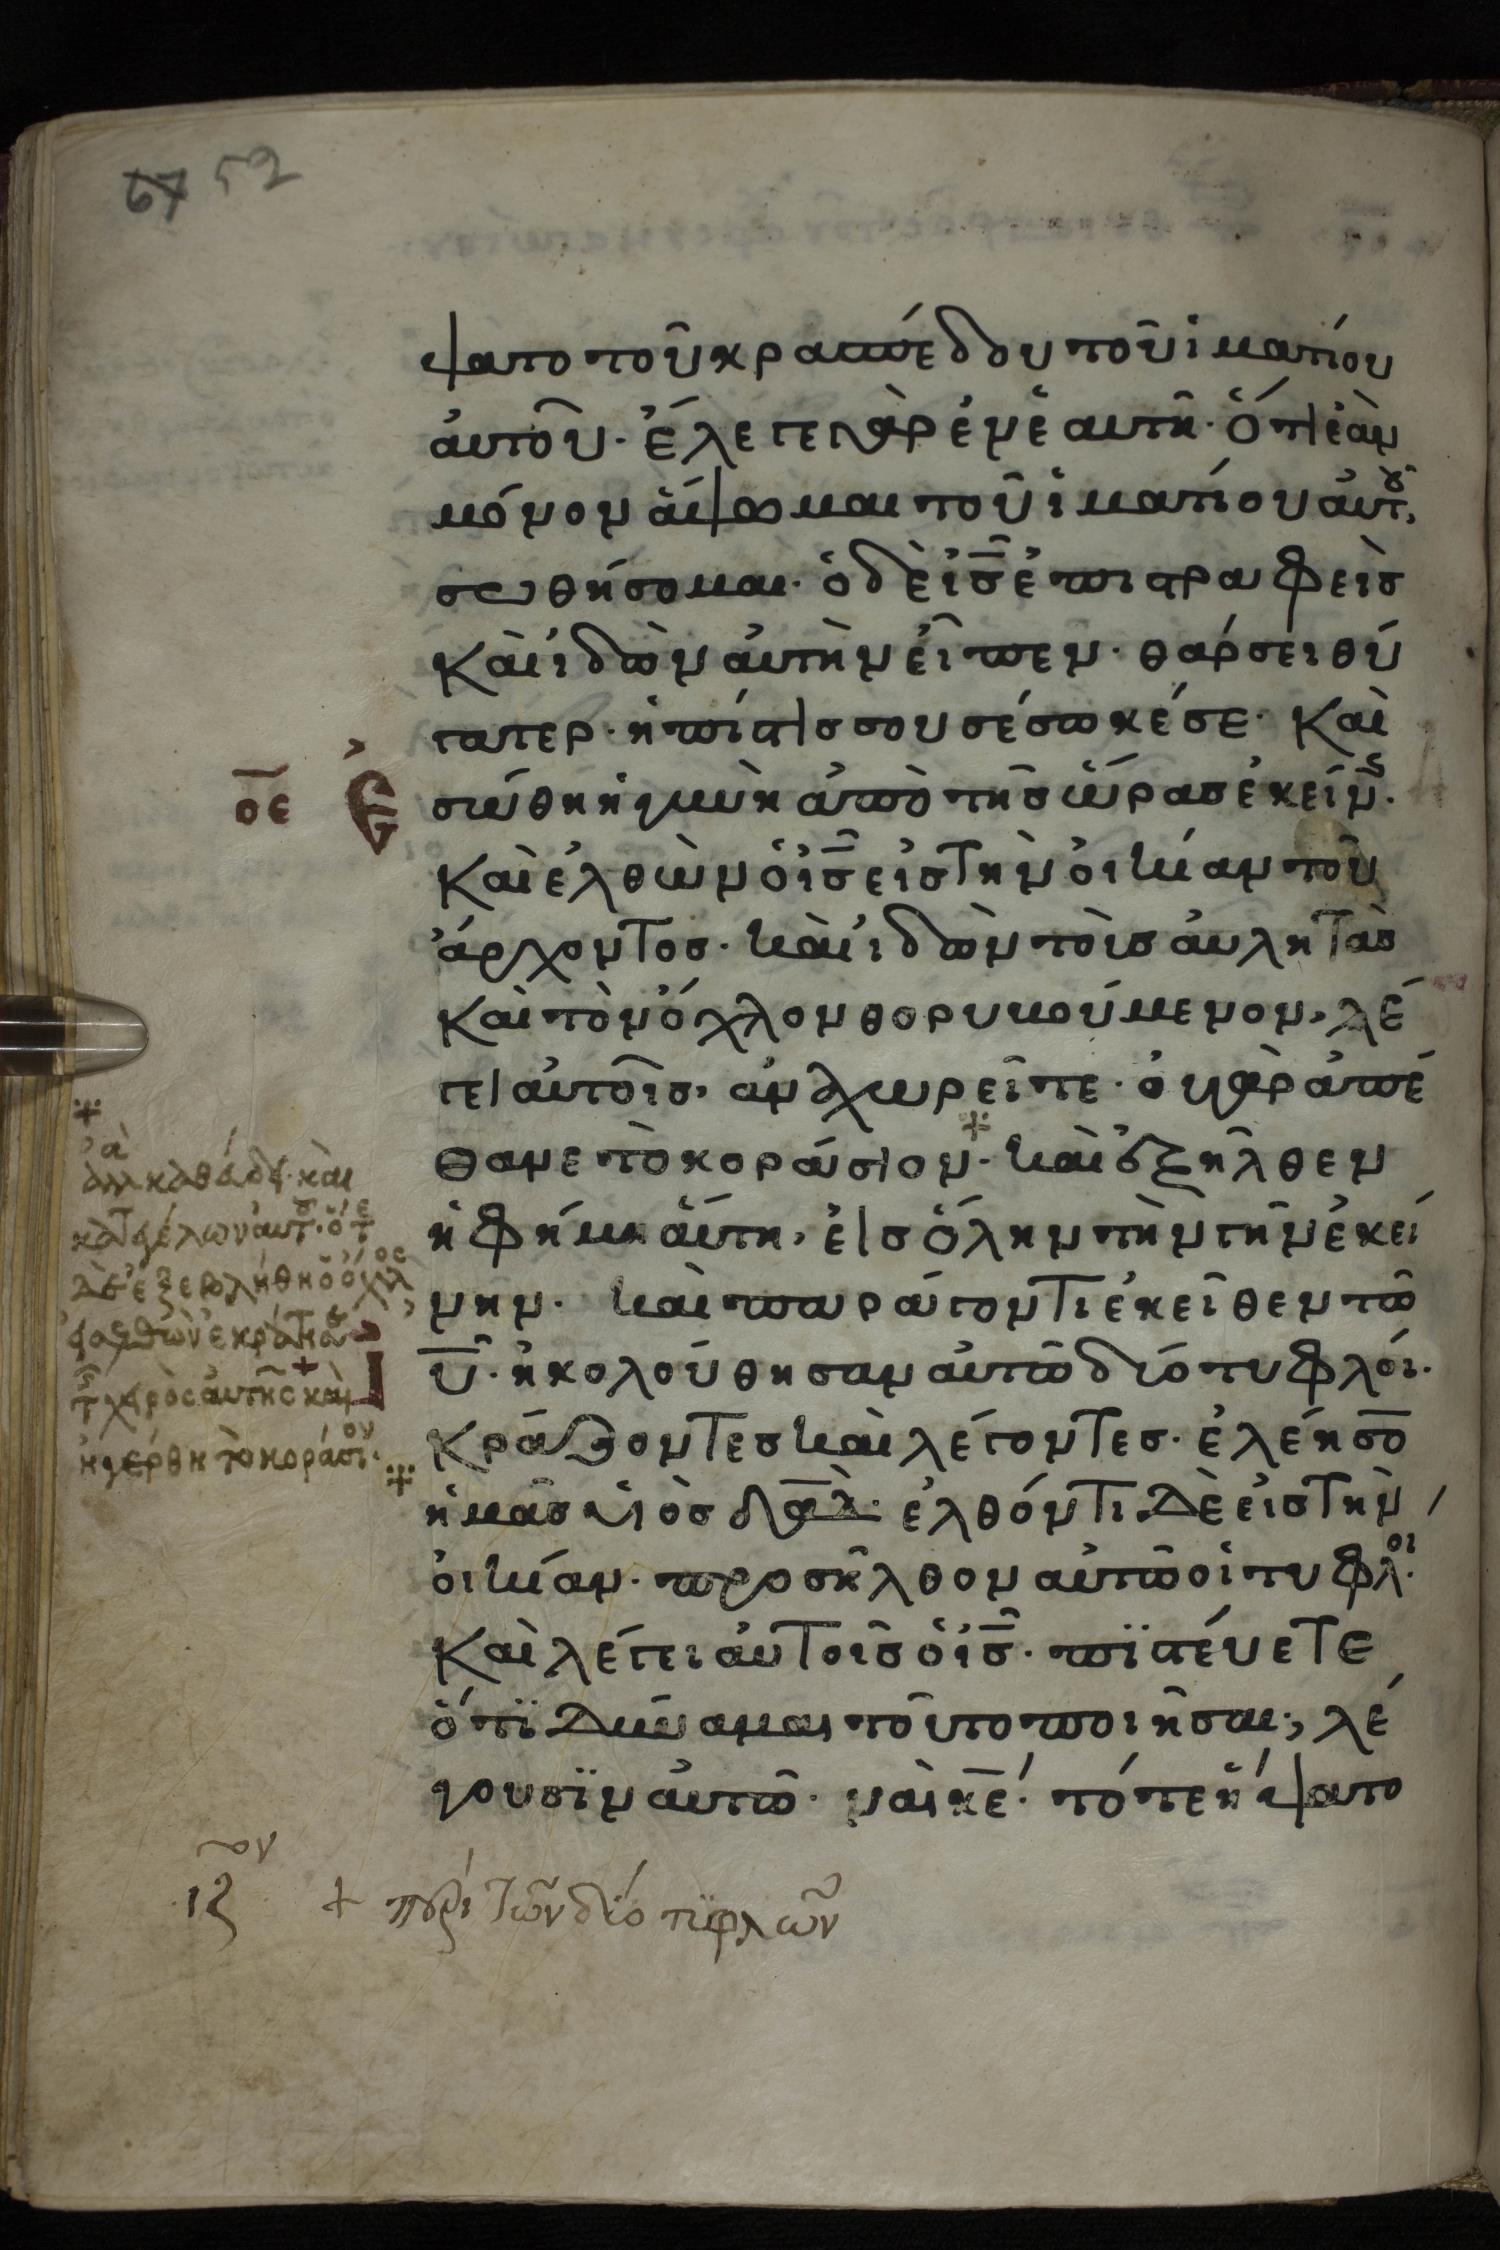 67 52
ψατο τοῦ κρασπέδου τοῦ ἱματίου
ἀυτοῦ· ἔλεγε γὰρ ἐν ἑαυτῆ· ὅτι ἐὰν
μόνον ἅψωμαι τοῦ ἱματίου ἀυτοῦ,
σωθήσομαι· ὁ δὲ ι̅σ̅ ἐπιστραφεὶσ
Καὶ ἰδὼν ἀυτὴν εἶπεν· θάρσει θύ
γατερ· ἡ πίστισ σου σέσωκέ σε· Καὶ
ο̅ε̅ Ε σώθη ἡ γυνὴ ἀπὸ τῆσ ὥρασ ἐκείνησ·
Καὶ ἐλθὼν ὁ ι̅σ̅ εἰσ τὴν οἰκίαν τοῦ
ἄρχοντοσ· καὶ ἰδὼν τοὺσ ἀυλητὰσ
Καὶ τὸν ὄχλον θορυβούμενον, λέ
γει ἀυτοῖσ, ἀναχωρεῖτε· ὀυ γὰρ ἀπέ
θανε τὸ κοράσιον· καὶ ἐξῆλθεν
ἡ φήμη ἅυτη, εἰσ ὅλην τὴν γῆν ἐκεί
νην· καὶ παράγοντι ἐκεῖθεν τῶ
ι̅υ̅· ἠκολούθησαν ἀυτῶ δύο τυφλόι·
Κράζοντεσ καὶ λέγοντεσ· ἐλέησο̅
ἡμᾶσ υἱὸσ δ̅α̅δ̅· ἐλθόντι δὲ εἰσ τὴν
ὀικίαν· προσῆλθον ἀυτῶ οἱ τυφλοι·
Καὶ λέγει ἀυτοῖσ ὁ ι̅σ̅· πϊστέυετε
ὅτϊ δύναμαι τοῦτο ποιῆσαι; λέ
γουσϊν ἀυτῶ· ναὶ κ̅ε̅· τότε ἥψατο
ἀλλὰ καθέυδει· καὶ
κατεγέλων ἀυτοῦ· ὅτε
δὲ ἐξεβλήθη ὁ ὄχλος
εἰσελθὼν ἐκράτησε
τῆς χειρὸς ἀυτῆς καὶ
ἠγέρθη τὸ κοράσιον·
ιζον + περὶ τῶν δύο τϋφλῶν